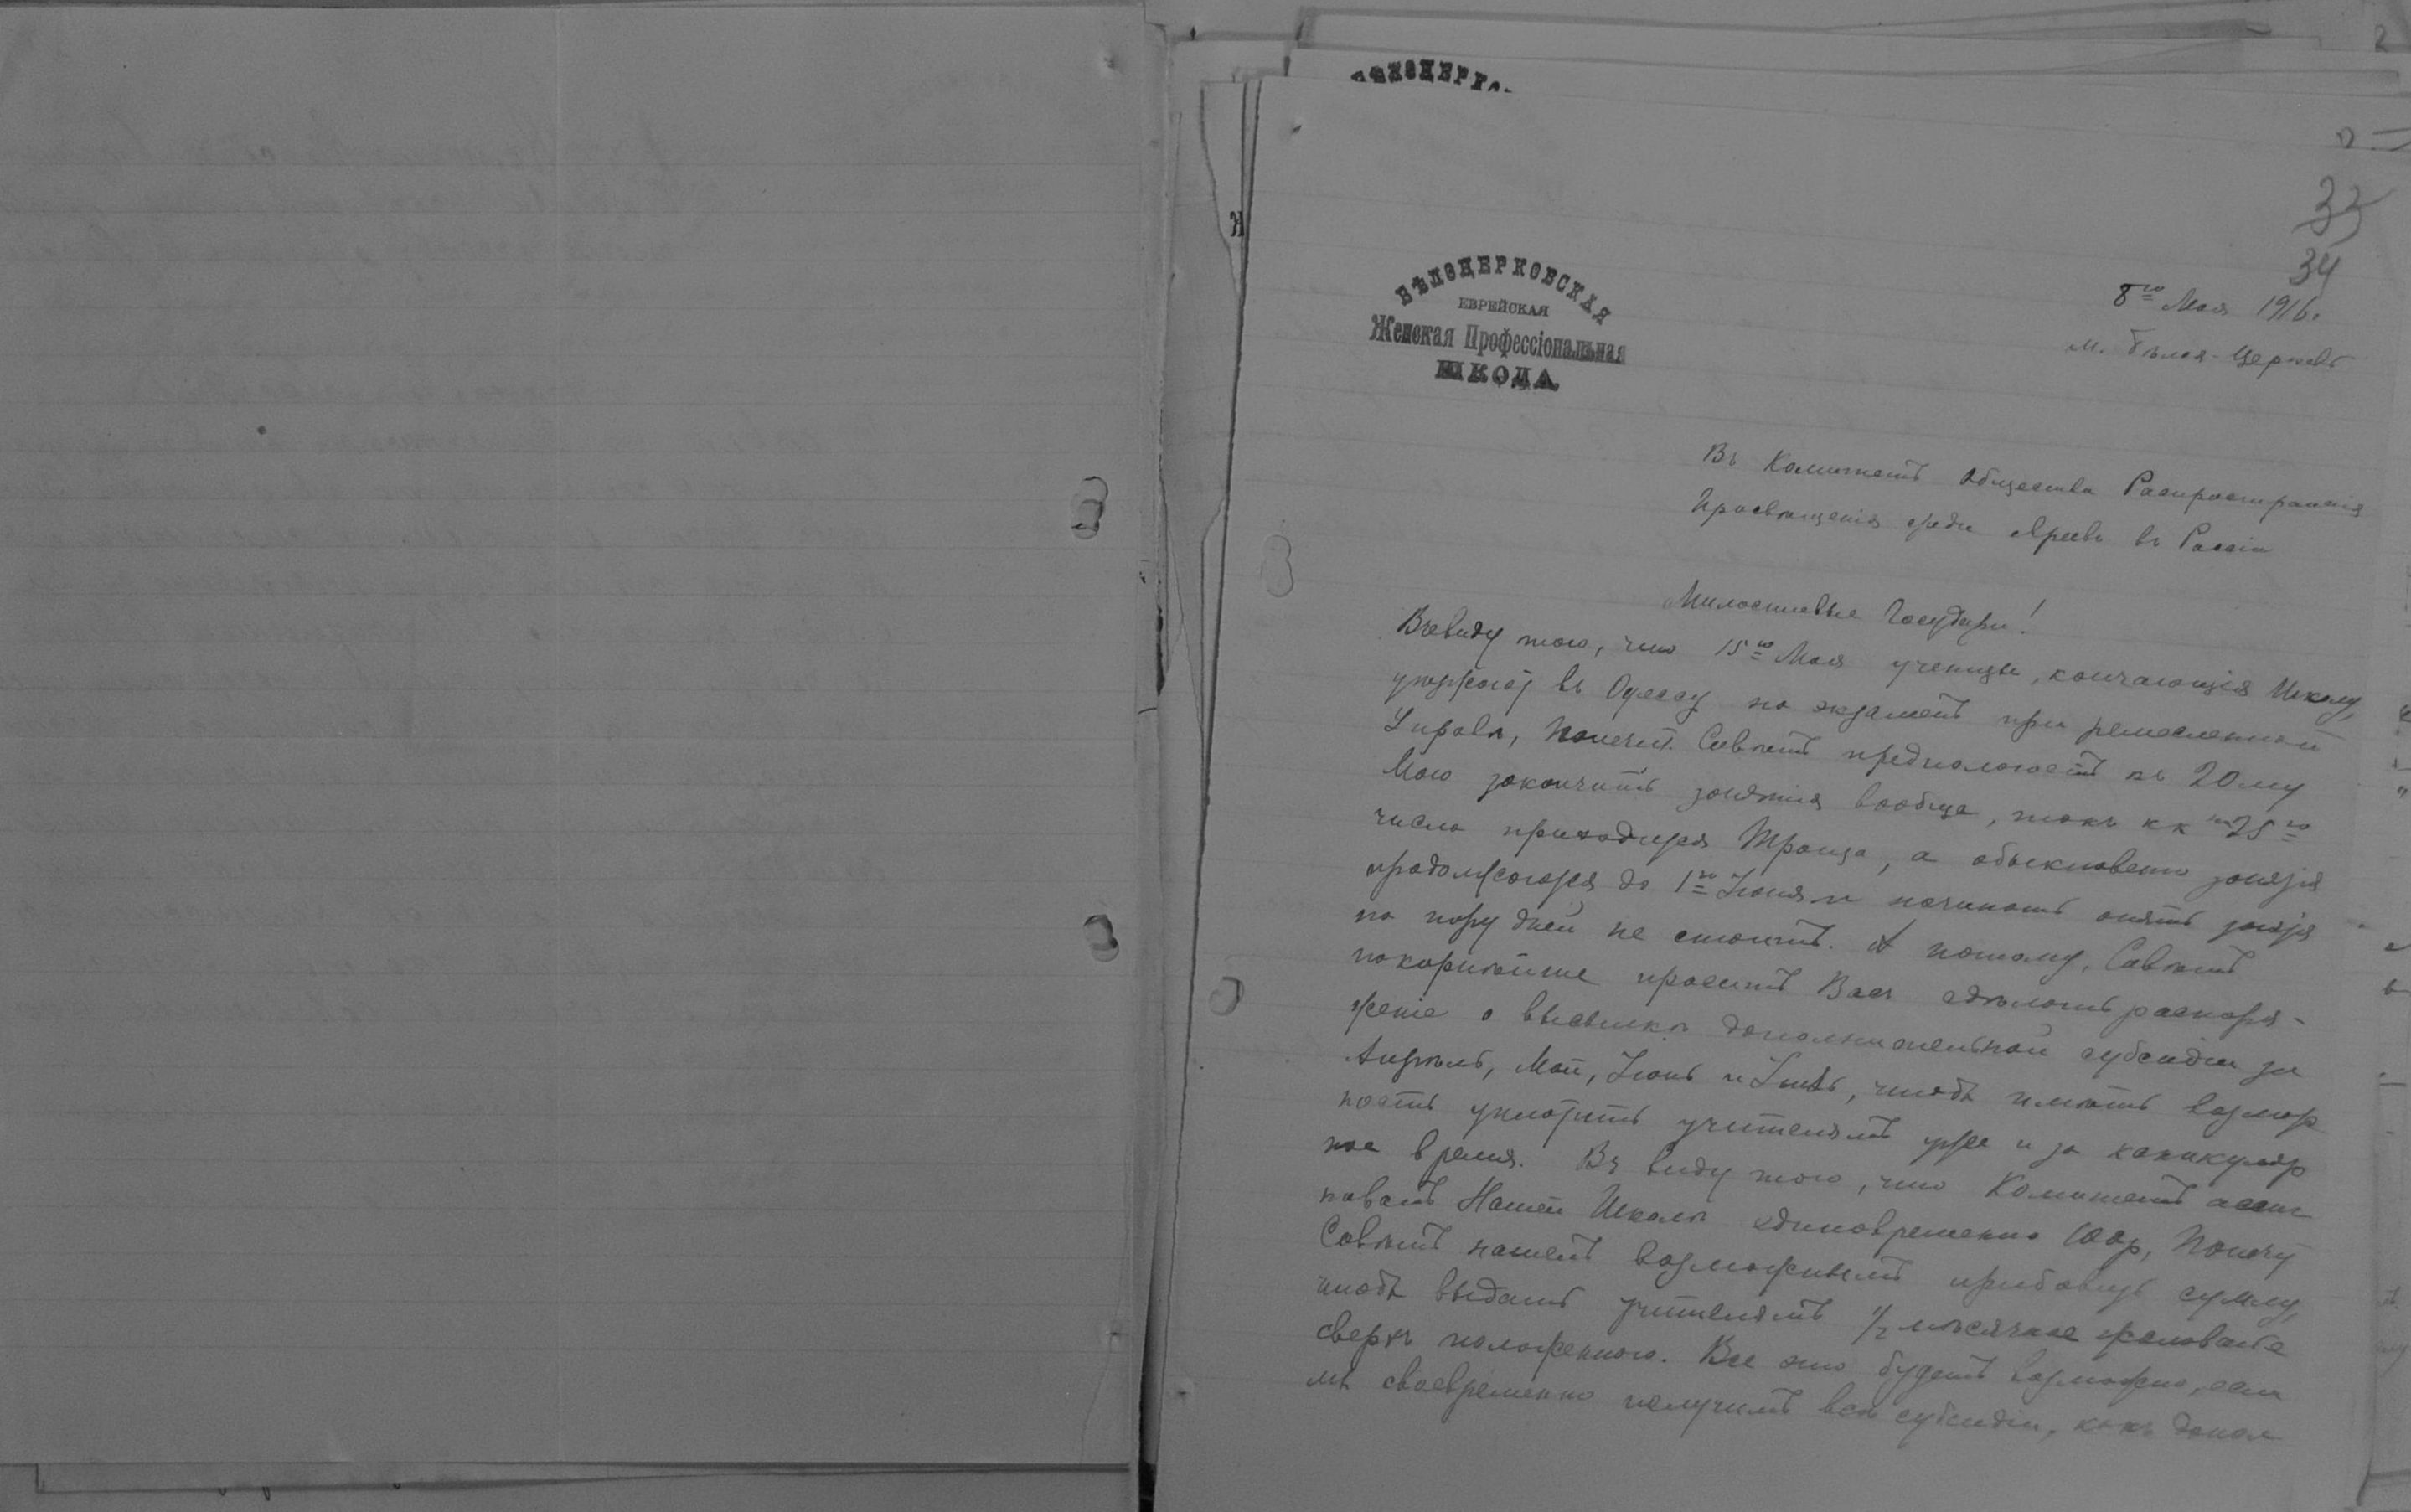 33
34
БѢЛОЦЕРКОВСКАЯ
ЕВРЕЙСКАЯ
Женская Профессіональная
ШКОЛА
8го Мая 1916.
м. Бѣлая-Церковь
Въ Комитетъ Общества Распространенія
Просвѣщенія среди Евреевъ въ Россіи
Милостивые Государи!
Ввиду того, что 15го Мая ученицы, кончающія Школу,
уѣзжают въ Одессу на экзаменъ при ремесленной
Управѣ, Попечит. Совѣтъ предполагаетъ къ 20му
Маю закончить занятія вообще, такъ кк на 25го
число приходится Троица, а обыкновенно занятія
продолжаются до 1го Іюня и начинать опять занятія
на пару дней не стоитъ. А потому, Совѣтъ
покорнѣйше проситъ Васъ сдѣлать распоря-
женіе о высылкѣ дополнительной субсидіи за
Апрѣль, Май, Іюнь и Іюль, чтобъ имѣть возмож
ность уплотить учителямъ уже и за каникуляр
ное время. Въ виду того, что Комитетъ ассиг
новалъ Нашей Школѣ единовременно 100р, Попечит
Совѣтъ нашелъ возможнымъ прибавить сумму,
чтобъ выдать учителямъ 1/2 мѣсячное жалованье
сверхъ положеннаго. Все это будетъ возможно, если
мы своевременно получимъ всѣ субсидіи, какъ допол